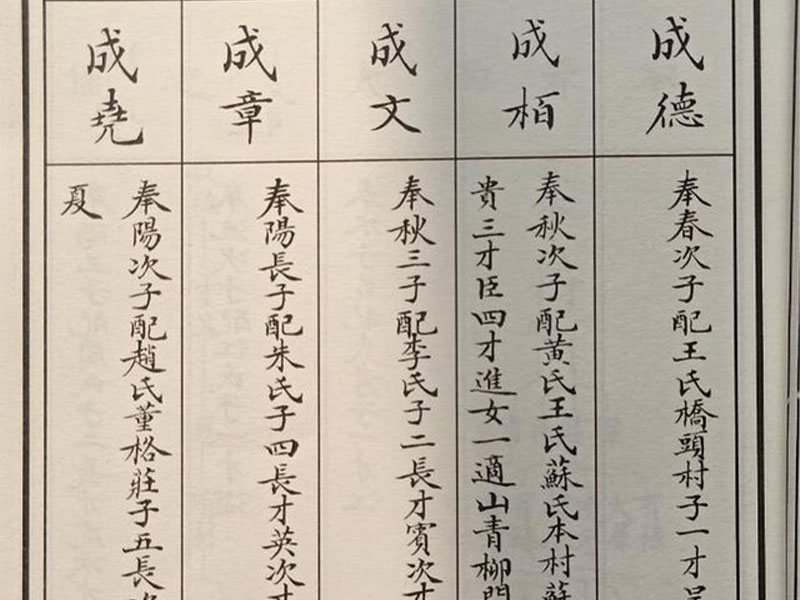 成德
奉春次子配王氏橋頭村子一才
成栢
奉秋次子配黃氏王氏蘇氏本村蘇
貴三才臣四才進女一適山青柳門
成文
奉秋三子配李氏子二長才賓次才
成章
奉陽長子配朱氏子四長才英次才
成堯
奉陽次子配趙氏董格莊子五長次
夏